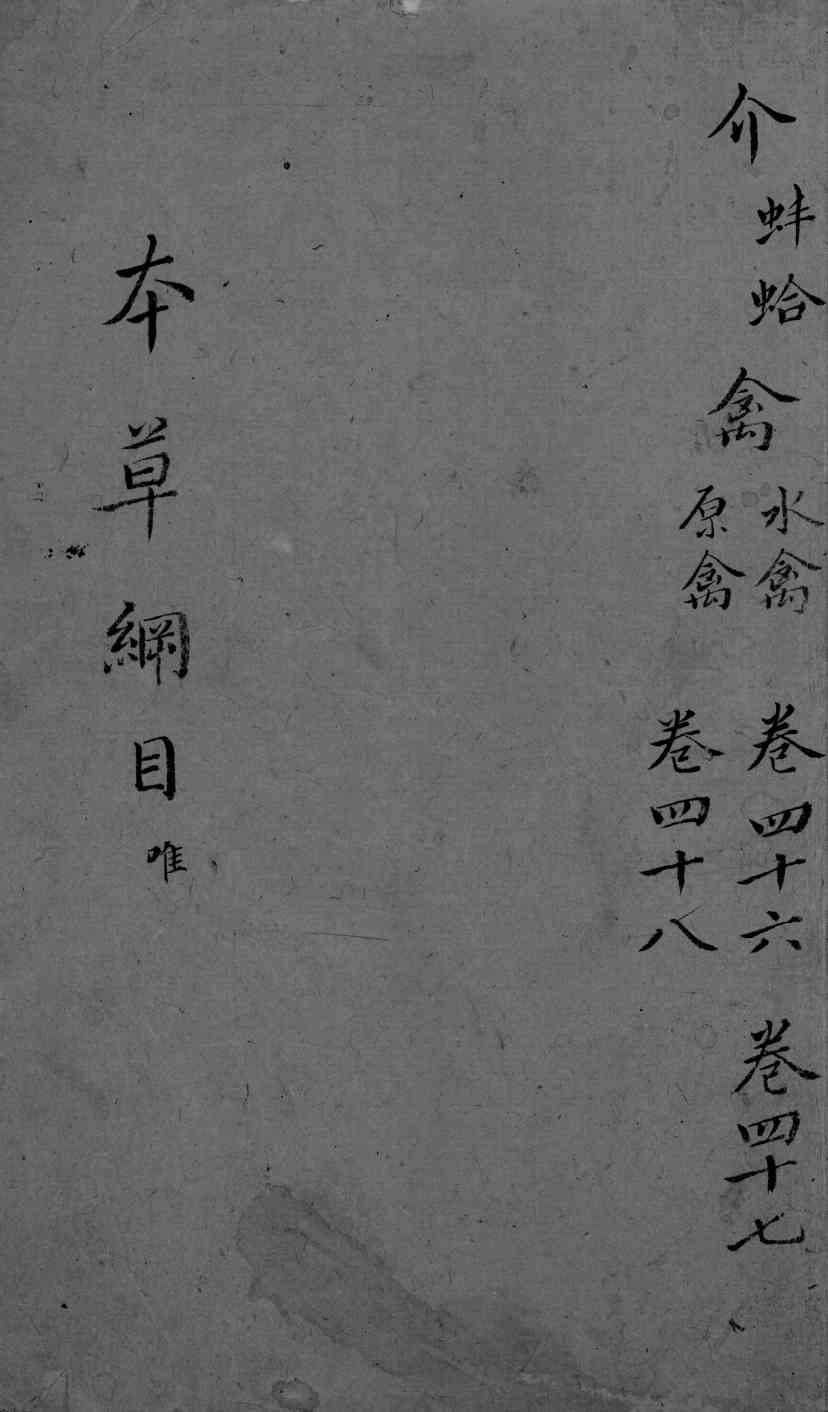 介 蚌蛤 禽 水禽 原禽
卷四十六 卷四十七
卷四十八
本草綱目 唯